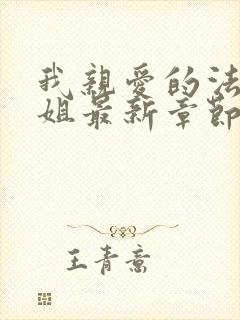 我親愛的法
姐最新章節
王青意